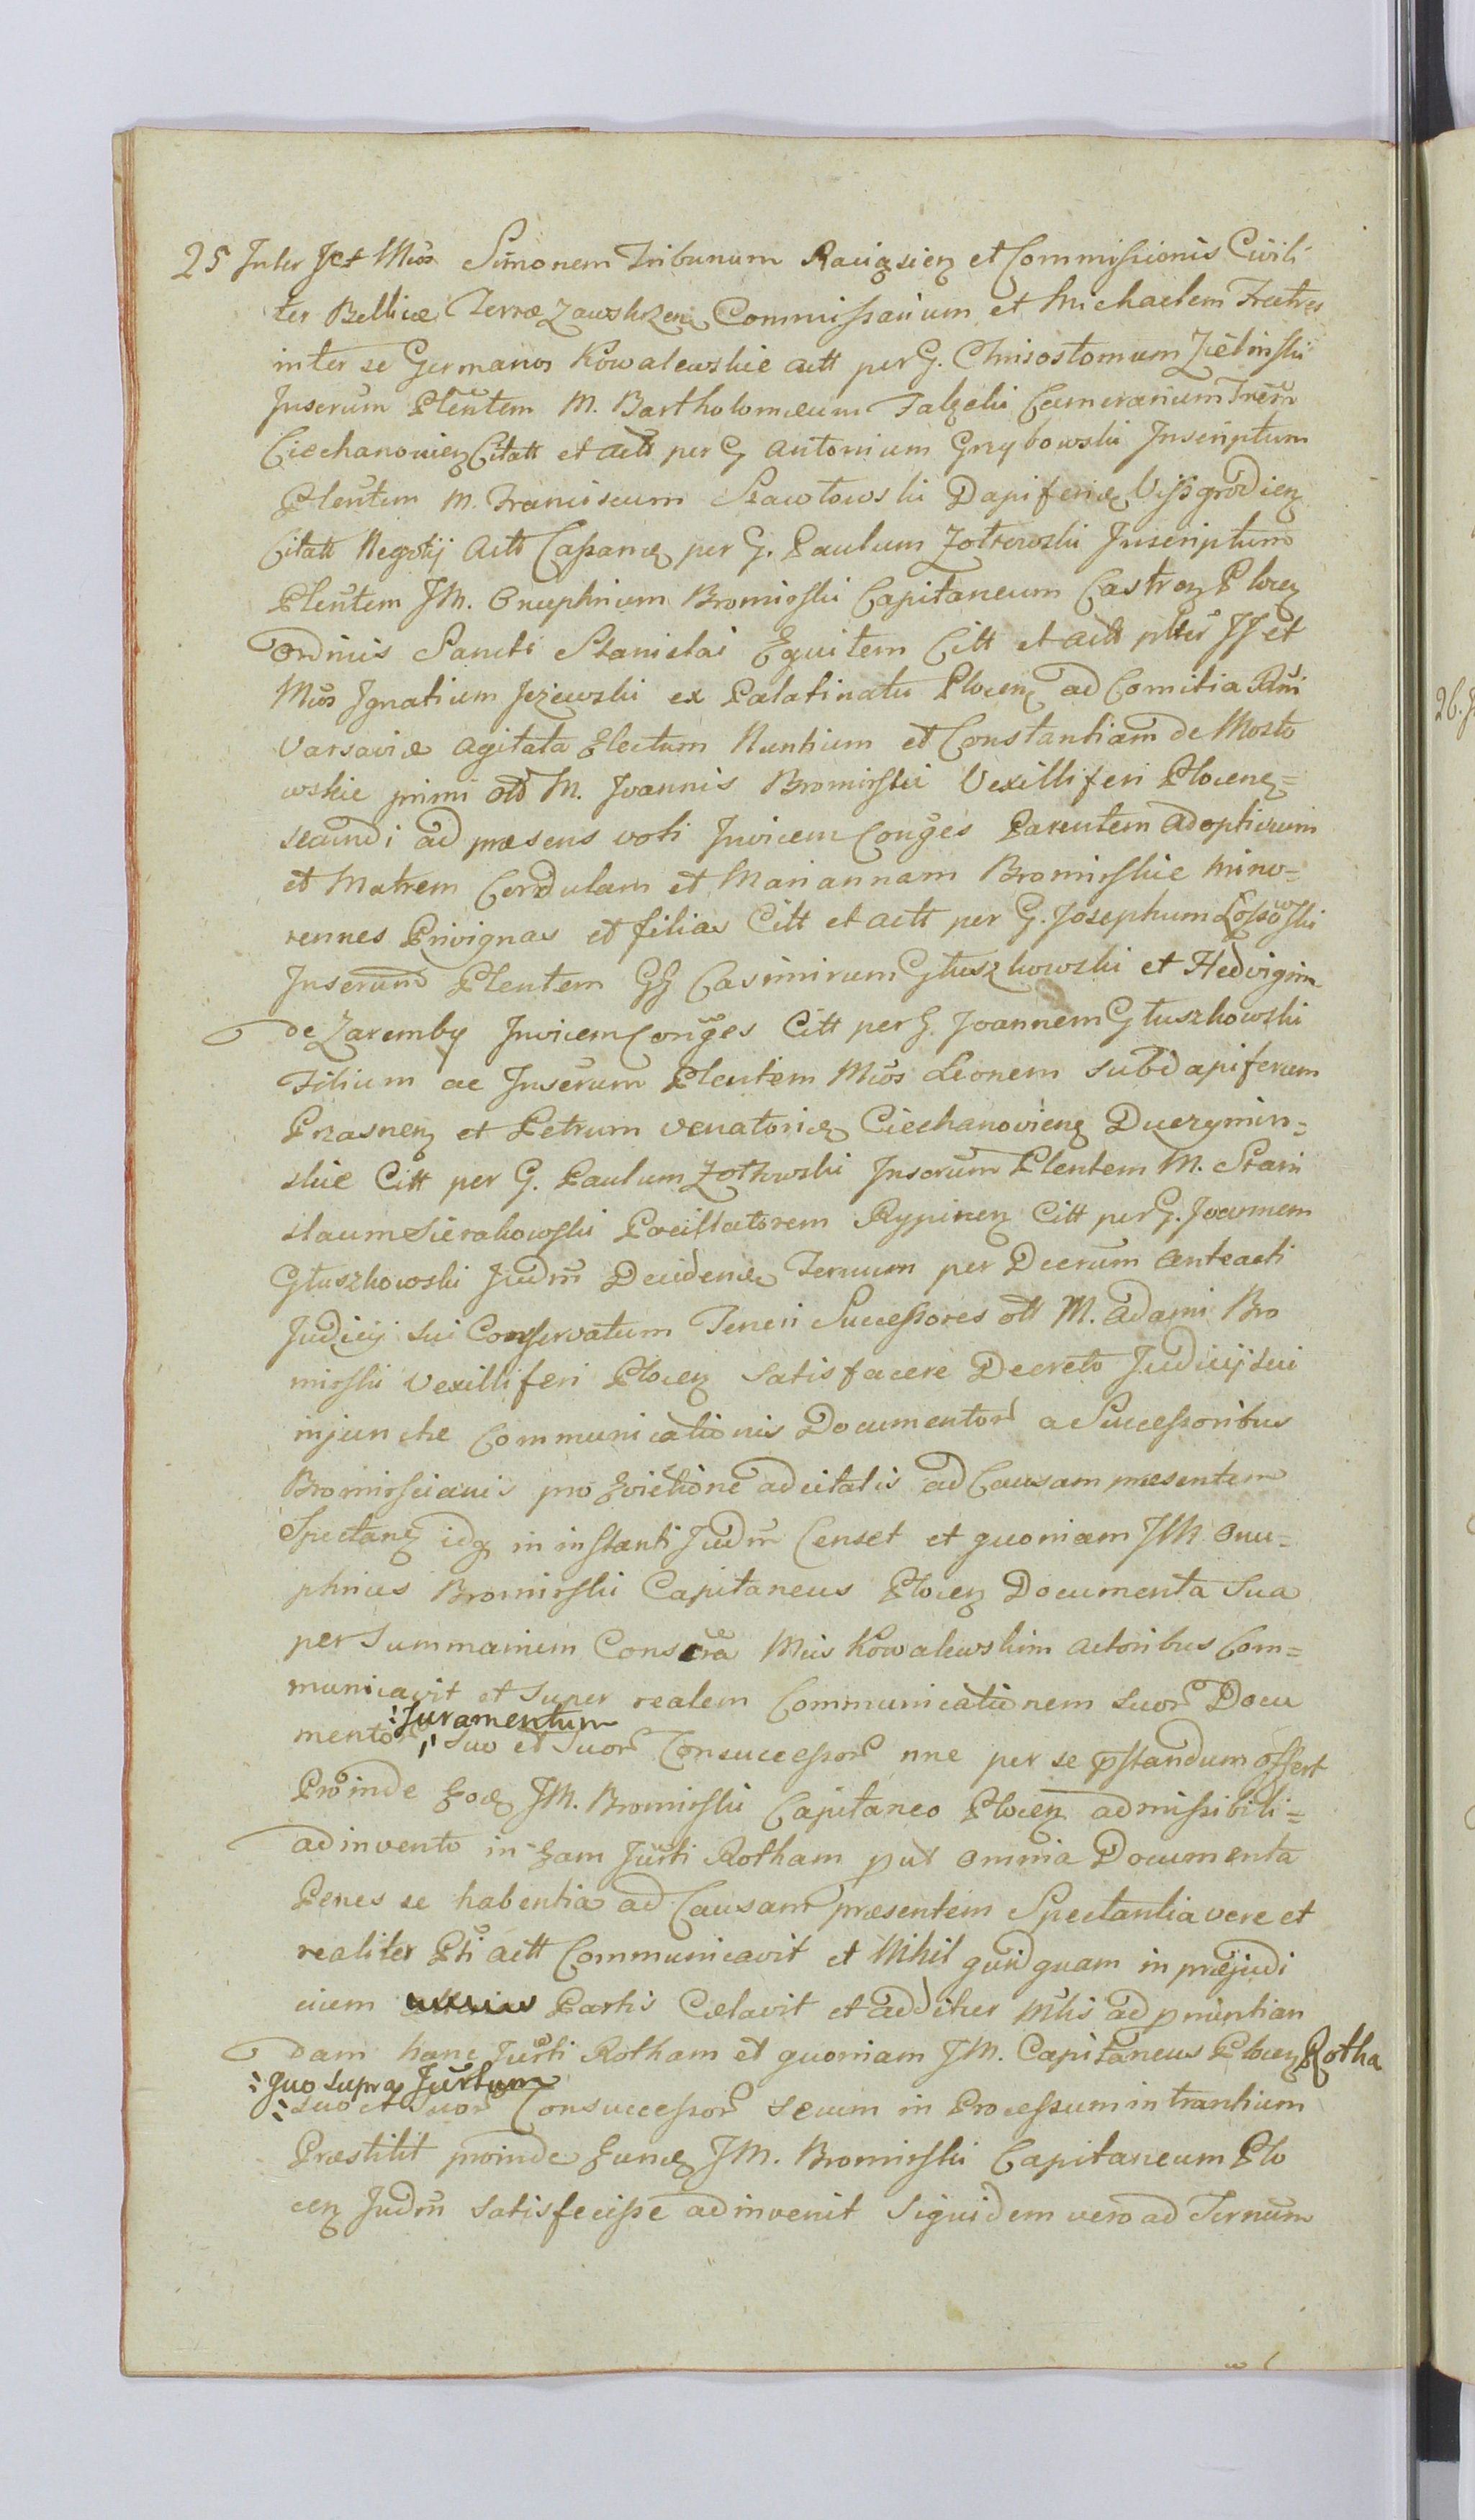 25 Inter JJet Mōs Simonem Tribunum Raviąsien et Commissionis Civili
ter Bellicæ Terræ Zawskrzen Commissarium et Michaelem Fratres
inter se Germanos Kowalewskie actt per G. Chrisostomum Zielinski
Inserum Pleñtem M. Bartholomæum Falęcki Camerarium Trēm
Ciechanovien Citatt et actt per G Antonium Grzybowski Inscriptum
Pleñtem M. Franciscum Szawłowski Dapiferidę Vissgrodien
Citatt Negotij Actt Cassandę per G. Paulum Żołtowski Inscriptum
Pleñtem JM. Onuphrium Bromirski Capitaneum Castren Plocen
Ordinis Sancti Stanislai Equitem Citt et actt plter JJ et
Mōs Ignatium Jeżewski ex Palatinatu Plocen ad Comitia Rlni
Varsaviæ agitata Electum Nuntium et Constantiam de Mosto
wskie primi olt M. Joannis Bromirski Vexilliferi Plocen=
secundi ad præsens voti Invicem Conges Parentem adoptivum
et Matrem Cordulam et Mariannam Bromirskie mino=
rennes Privignas et filias Citt et actt per G. Josephum Lossowski
Inserum Plentem GG Casimirum Głuszkowski et Hedvigim
de Zaremby Invicem Conges Citt per G. Joannem Głuszkowski
Filium ac Inserum Plentem Mōs Leonem subdapiferum
Przasnen et Petrum venatoridę Ciechanovien Duczymin=
skie Citt per G. Paulum Żołtowski Inserum Plentem M. Stani
slaum Sierakowski Pocillatorem Rypinen Citt per G. Joannem
Głuszkowski Judm Decidendę Termum per Decrum anteacti
Judicij sui Conservatum Teneri Successores olt M. Adami Bro
mirski Vexilliferi Plocen satisfacere Decreto Judicij sui
injunctæ Communicationis Documentor a Successoribus
Bromirscianis pro Evictione adcitatis ad Causam præsentem
Spectan idq in instanti Judm Censet et quoniam JM Onu=
phrius Bromirski Capitaneus Plocen Documenta sua
per Summarium Conscra Mis Kowalewskim actoribus Com=
municavit et super realem Communicationem suor Docu
mentor :Juramentum: suo et suor Consuccessor nne per se pstandum offert
Proinde Eodę JM. Bromirski Capitaneo Plocen admissibili=
adinvento in Eam Jurti Rotham put omnia Documenta
Penes se habentia ad Causam præsentem Spectantia vere et
realiter Pti actt Communicavit et Nihil quidquam in præjudi
cium Partis Cælavit et additur Mtis ad pnuntian
dam hanc Jurti Rotham et quoniam JM. Capitaneus Plocen Rotha
:quo supra Jurtum:
suo et suor Consuccessor secum in Processum intrantium
Præstitit proinde Eundę JM. Bromirski Capitaneum Plo
cen Judm satisfecisse adinvenit siquidem vero ad Ternum